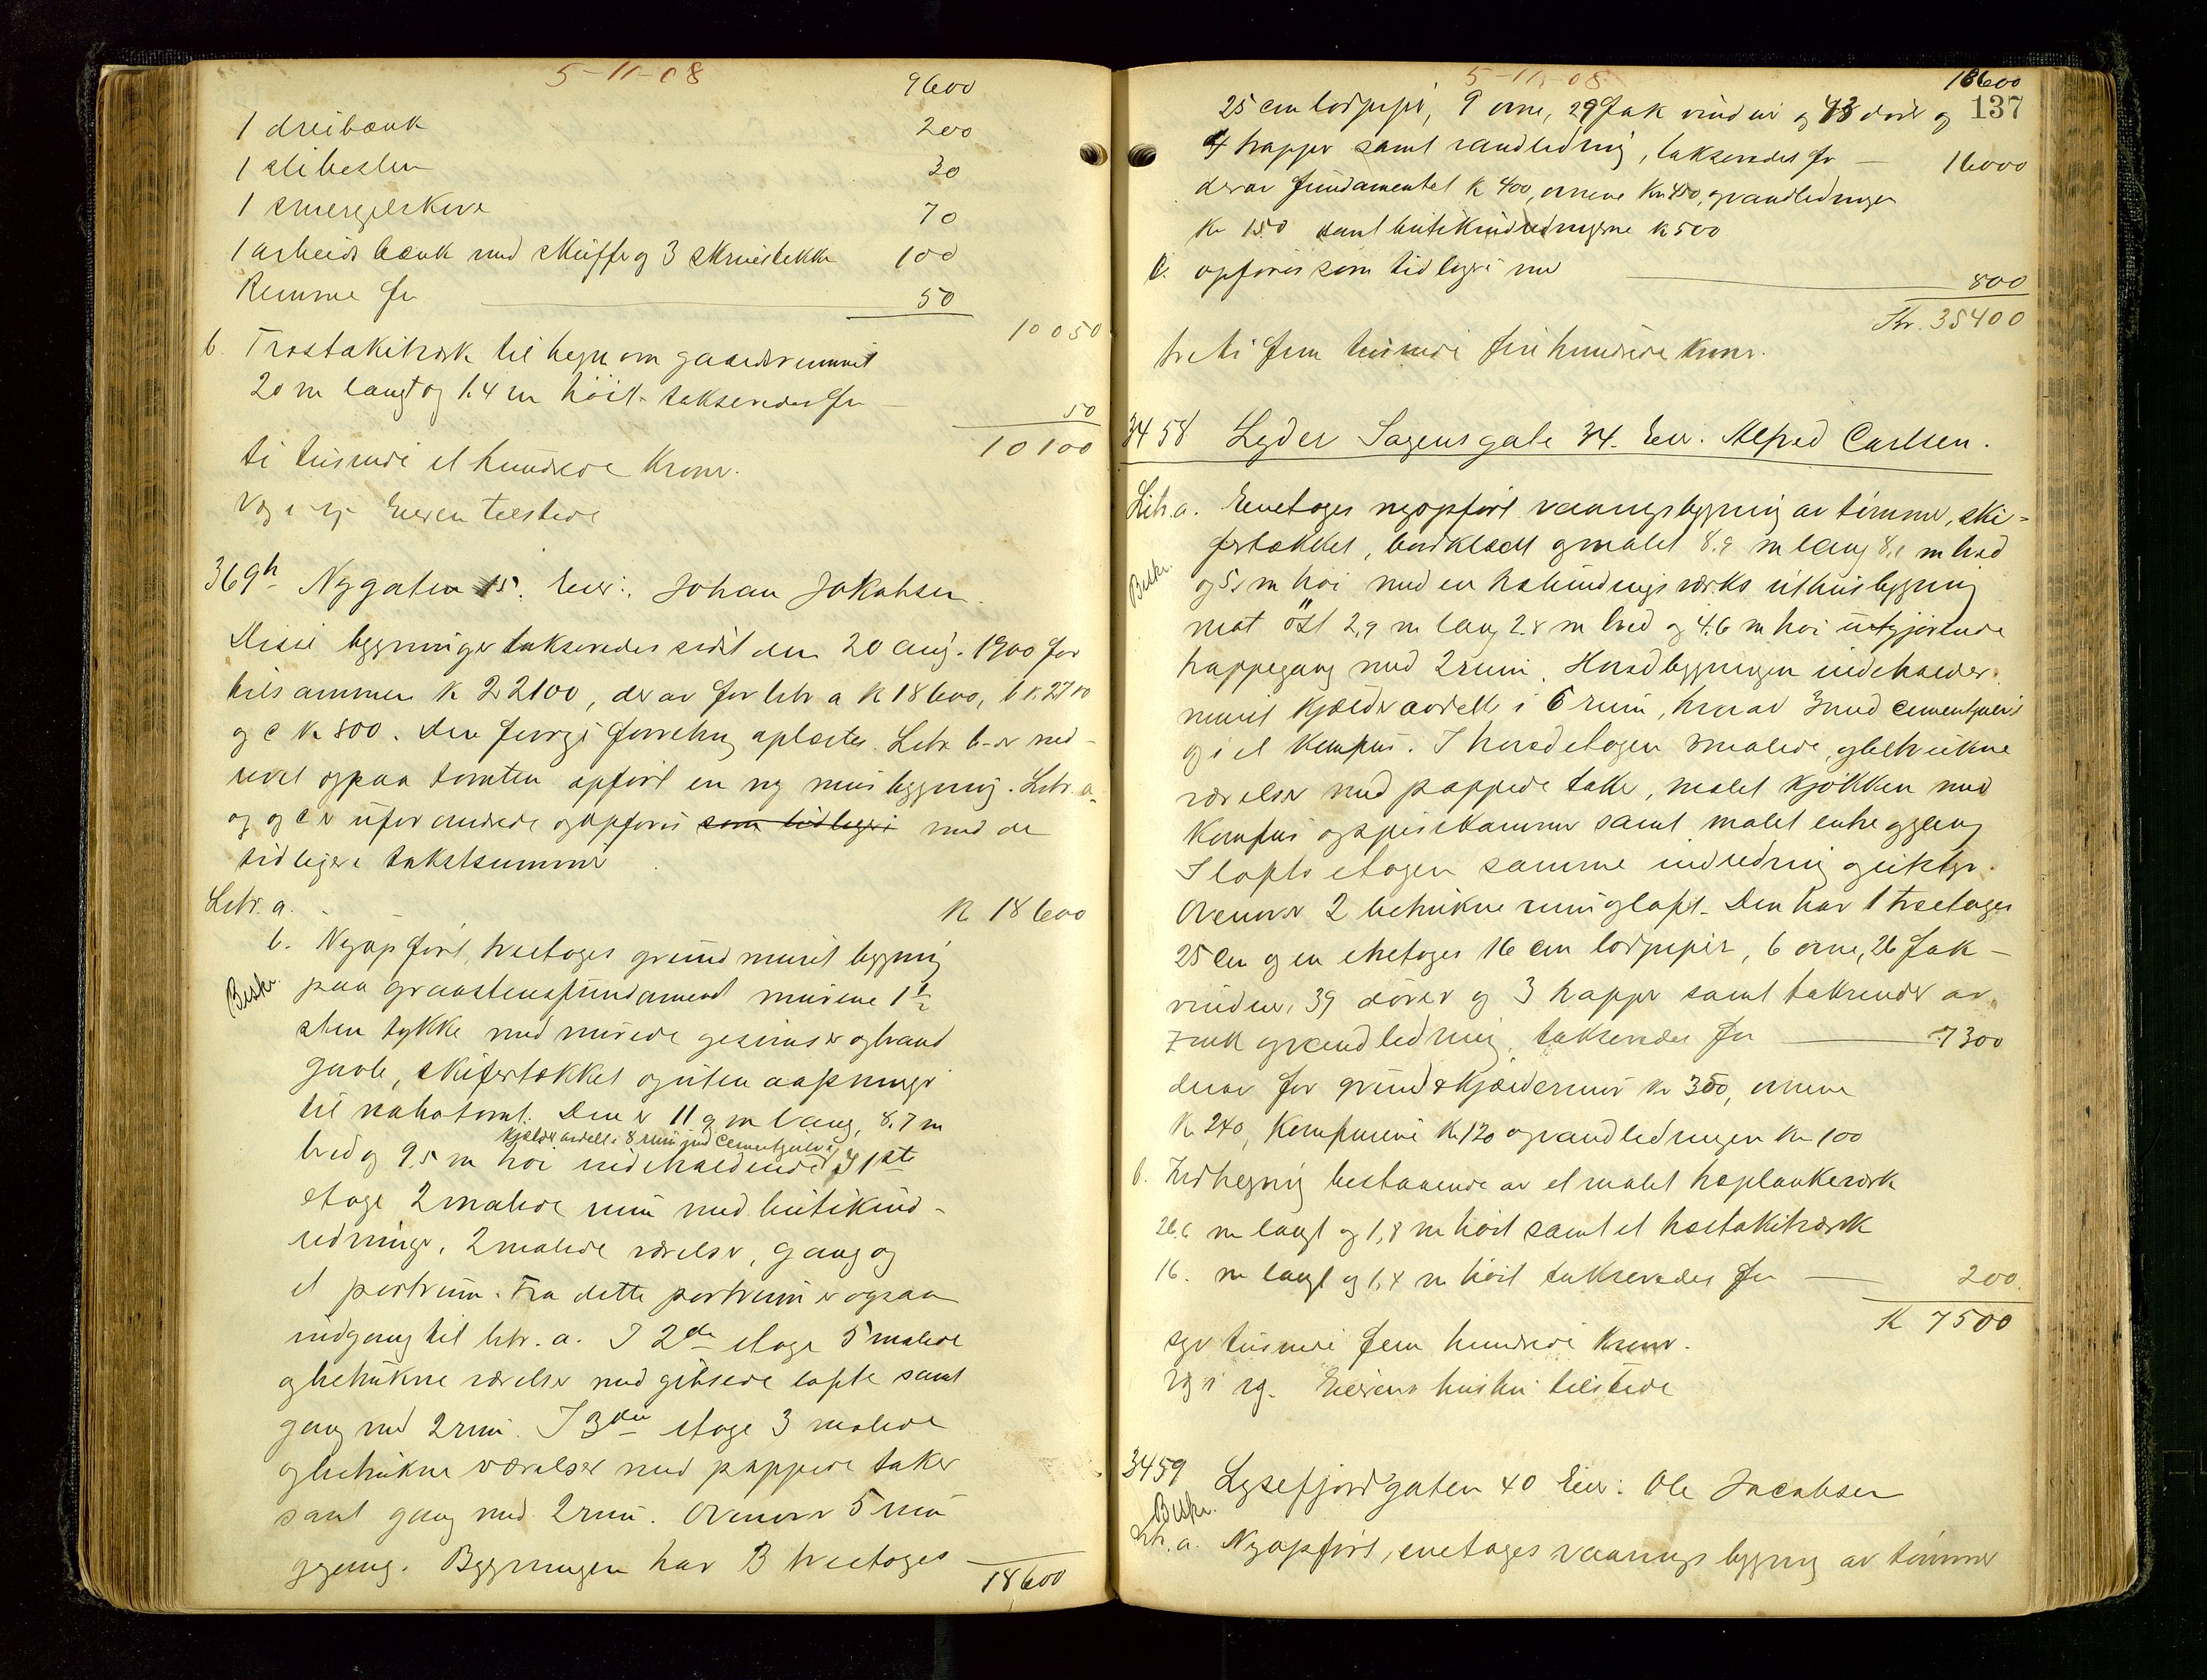 5-11-08
9600
1 dreibænk 200
1 slibesten 30
1 smergelskive 70
1 arbeidsbænk med skuffe og 3 skruestikke 100
Remme for 50
10050
b. Træstakitværk til hegn om gaardsrummet
20 m langt og 1.4 m høit takseredes for
50
10100
ti tusinde et hundrede Kroner.
Eieren tilstede
369h Nygaten 15. Eier: Johan Jakobsen.
Disse bygninger takseredes sidst den 20 aug. 1900 for
tilsammen K 22100, derav for litr a K 18600, b K 2700
og c K 800. Den forrige forretning oplæstes. Litr. b er ned-
revet og paa tomten opført en ny mur bygning. Litr. a
og og c er uforandrede og opføres som tidligere med de
tidligere takstsummer
Litr. a. K 18600
b. Nyopført, treetages grundmuret bygning
Beskr.
paa graastensfundament murene 1½
sten tykke med murede gesimser og brand
gavle, skifertækket og uten aapninger
til nabotomt. Den er 11,9 m lang, 8.7 m
kjelder avdelt i 8 rum med cementgulv,
bred og 9.5 m høi indeholdende I 1ste
etage 2 malede rum med butikind-
redninger, 2 malede værelser, gang og
et portrum. Fra dette portrum er ogsaa
indgang til litr. a. I 2den etage 5 malede
og betrukne værelser med gibsede lofte samt
gang med 2 rum. I 3die etage 3 malede
og betrukne værelser med pappede taker
samt gang med 2 rum. Ovenover 5 rum
og gang. Bygningen har 3 treetages
18600
5-11-08
18600
137
25 cm lodpiper, 9 ovne, 29 fak vinduer og 43 dører og
4 trapper samt vandledning, takseredes for 16000
derav fundamentet K 400, ovnene Kr 450, vandledningen
Kr 150 samt butikindredningerne K 500
c. opføres som tidligere med 800
Kr. 35400
treti fem tusinde fire hundrede kroner.
3458 Lyder Sagensgate 34. Eier. Alfred Carlsen.
Litr. a. Enetages nyopført vaaningsbygning av tømmer, ski-
Beskr.
fertækket, bordklædt og malet 8.9 m lang 8,1 m bred
og 5, m høi med en halvindingsværks uthusbygning
mot öst 2,9 m lang 2.8 m bred og 4.6 m høi utgjørende
trappegang med 2 rum. Hovedbygningen indeholder
muret kjælder avdelt i 6 rum, hvorav 3 med cementgulv
og i et Komfur. I hovedetagen malede og betrukne
værelser med pappede taker, malet kjøkken med
Komfur og spisekammer samt malet entre og gang
I loftsetagen samme indredning og utstyr.
Ovenover 2 betrukne rum og loft. Den har 1 treetages
25 cm og en etetages 16 cm lodpiper, 6 ovne, 26 fak
vinduer, 39 dører og 3 trapper samt takrender av
zink og vandledning, takseredes for 7300
derav for grund & kjældermur Kr 350, ovnene
K 240, Komfurene K 120 og vandledningen Kr 100
b. Indhegning bestaaende av et malet træplankeværk
26,6 m langt og 1,8 m høit samt et træstakitværk
16. m langt og 1,4 m høit takseredes for 200.
K 7500
syv tusinde fem hundrede kroner.
Eierens hustru tilstede
3459 Lysefjordgaten 40 Eier: Ole Jacobsen
Beskr.
Litr. a. Nyopført, enetages vaanings bygning av tømmer